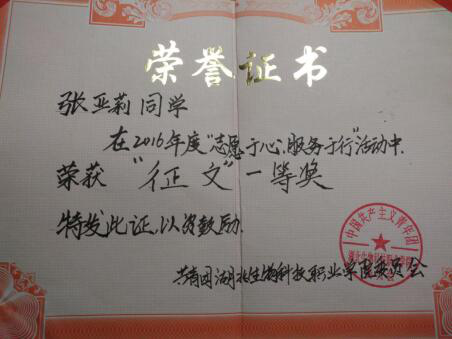 荣誉证书
张亚莉同学
在2016年度"志愿于心,服务于行"活动中,
荣获"征文"一等奖
特发此证,以资鼓励.
共青团湖北生物科技职业学院委员会
中国共产主义青年团